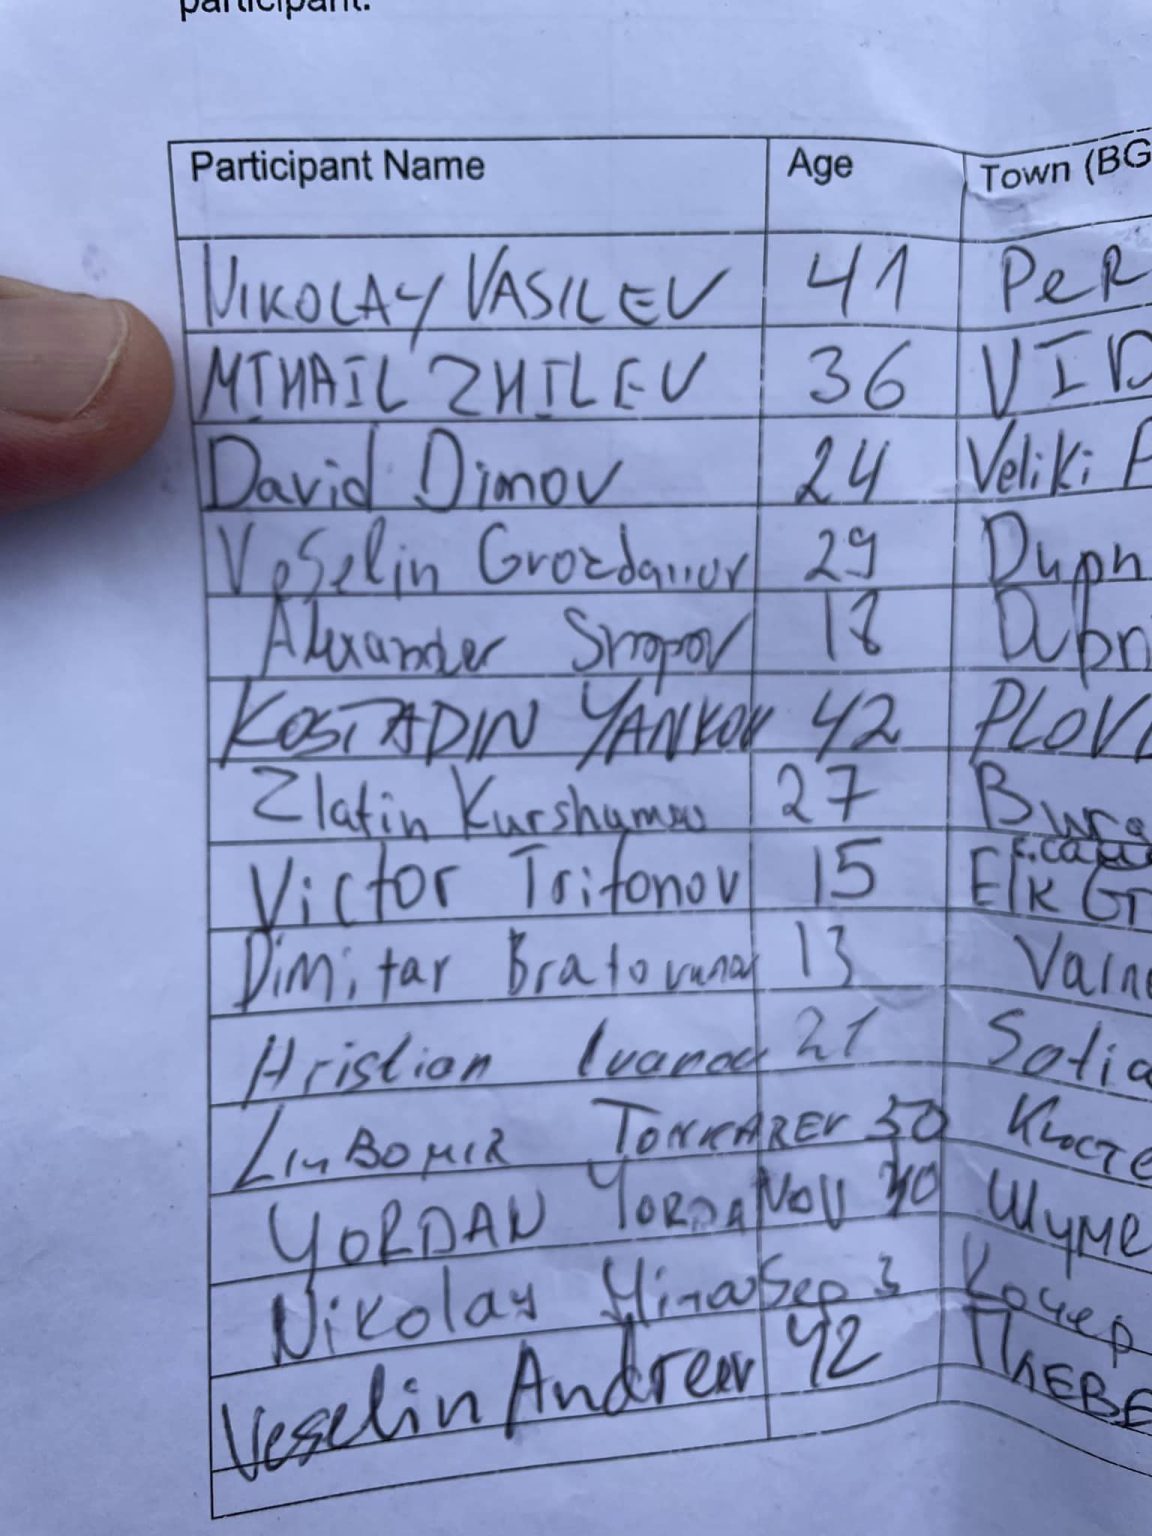 participant.
Participant Name Age Town (BG
NIKOLAY VASILEV 41 PeR
MIHAIL ZHILEV 36 VID
David Dimov 24 Veliki P
Veselin Grozdanov 29 Dupn
Alexander 18 Dupn
KOSTADIN YANKOV 42 PLOVI
Zlatin 27 Burga
Victor Trifonov 15 Elk Gr
Dimitar 13 Varn
Hristian Ivanov 21 Sofia
LIUBOMIR 50 Кюсте
YORDAN YORDANOV 40 Шуме
Nikolay 3 Кочер
Veselin Andreev 42 ПЛЕВЕ